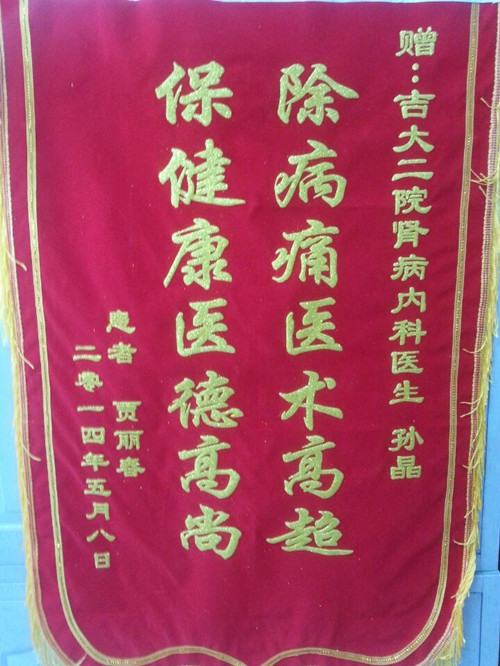 赠：吉大二院肾病内科医生 孙晶
除病痛医术高超
保健康医德高尚
患者 贾丽春
二零一四年五月八日